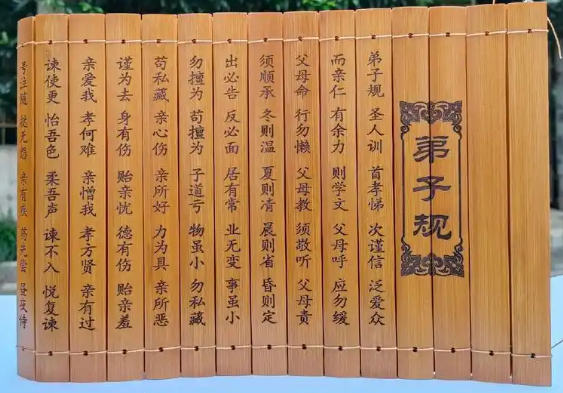 弟子规
弟子规 圣人训 首孝悌 次谨信 泛爱众
而亲仁 有余力 则学文 父母呼 应勿缓
父母命 行勿懒 父母教 须敬听 父母责
须顺承 冬则温 夏则凊 晨则省 昏则定
出必告 反必面 居有常 业无变 事虽小
勿擅为 苟擅为 子道亏 物虽小 勿私藏
苟私藏 亲心伤 亲所好 力为具 亲所恶
谨为去 身有伤 贻亲忧 德有伤 贻亲羞
亲爱我 孝何难 亲憎我 孝方贤 亲有过
谏使更 怡吾色 柔吾声 谏不入 悦复谏
号泣随 挞无怨 亲有疾 药先尝 昼夜侍